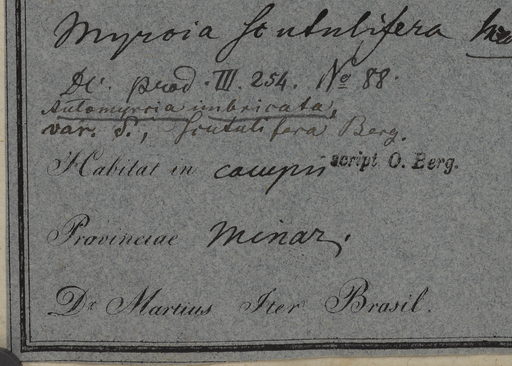 Myrcia scutulifera
DC. prod. III. 254. No 88.
Aulomyrcia imbricata,
var. δ., scutulifera Berg.
Habitat in campis script O. Berg.
Provinciae Minar.
Dr. Martius Iter Brasil.